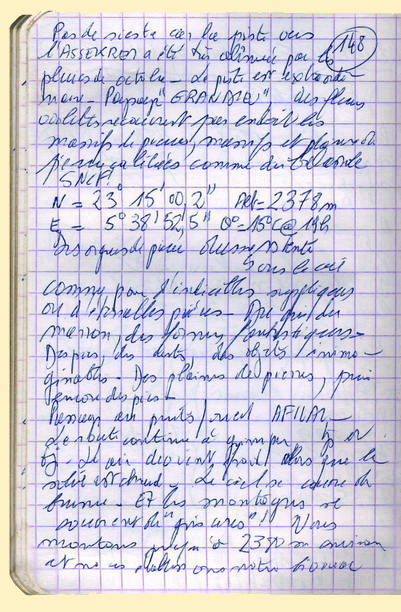 Pas de sieste car la piste vers
l'ASSEKREM a été très abîmée par les
148
pluies d'octobre - La piste est extraordi-
naire - Paysages "GRANDIOSES" des fleurs
violettes recouvrent par endroit les
massifs de pierres, massifs et plaines
comme du
SNCF!
N = 23° 15' 00,2" Alt = 2378m
E = 5° 38' 52,5" θ° = 15°C @ 19h
Des orgues de pierre
sous le ciel
comme pour d'indicibles suppliques
ou d'éternelles prières -
marron, des formes fantastiques -
Des pics, des dents, des objets inima-
ginables - Des plaines de pierres, puis
encore des pics -
Passage au puits / oued AFILAL -
La route continue à grimper
Le air devient froid, alors que le
soleil est chaud - Le ciel se couvre de
brume - Et les montagnes se
couvrent de "gris" ! Nous
montons jusqu'à 2380 m environ
et nous installons notre bivouac